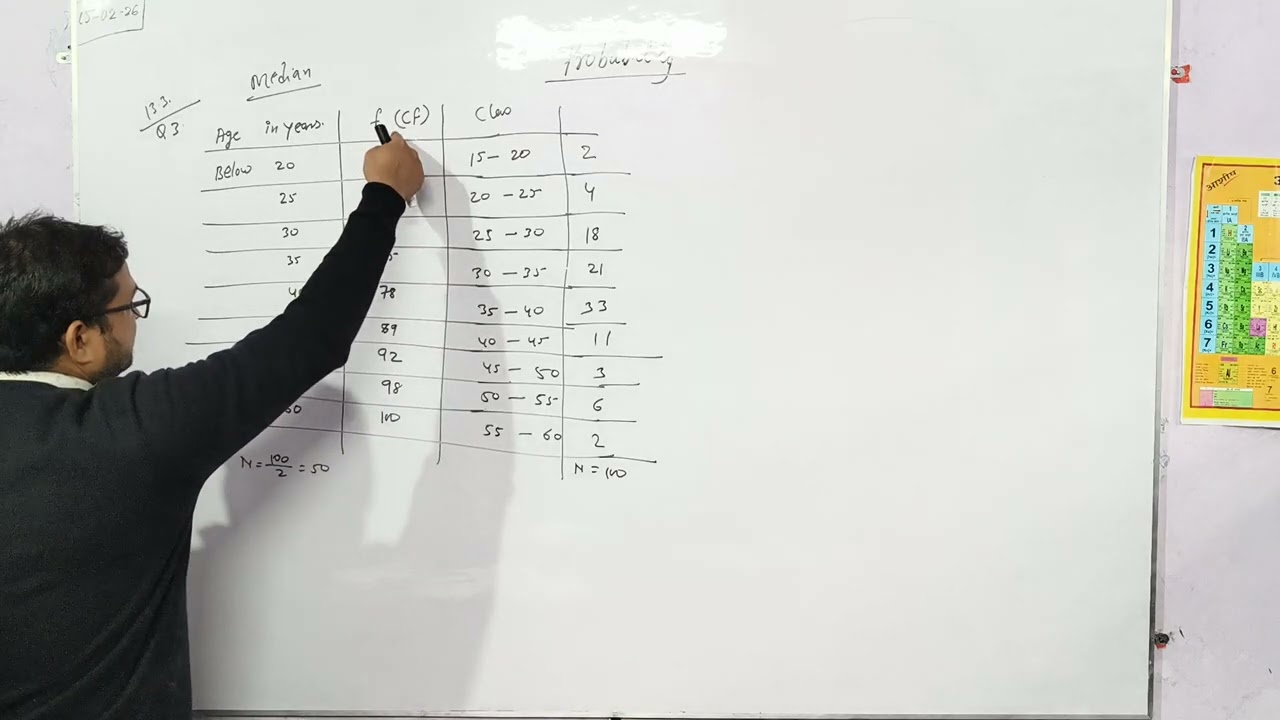 15-02-26
Probability
Median
13.3.
Q3.
Age in years. f (Cf) Class
Below 20 15 - 20 2
25 20 - 25 4
30 25 - 30 18
35 30 - 35 21
78 35 - 40 33
89 40 - 45 11
92 45 - 50 3
98 50 - 55 6
100 55 - 60 2
N = 100/2 = 50 N = 100
आशीष
1
2
3
4
5
6
7